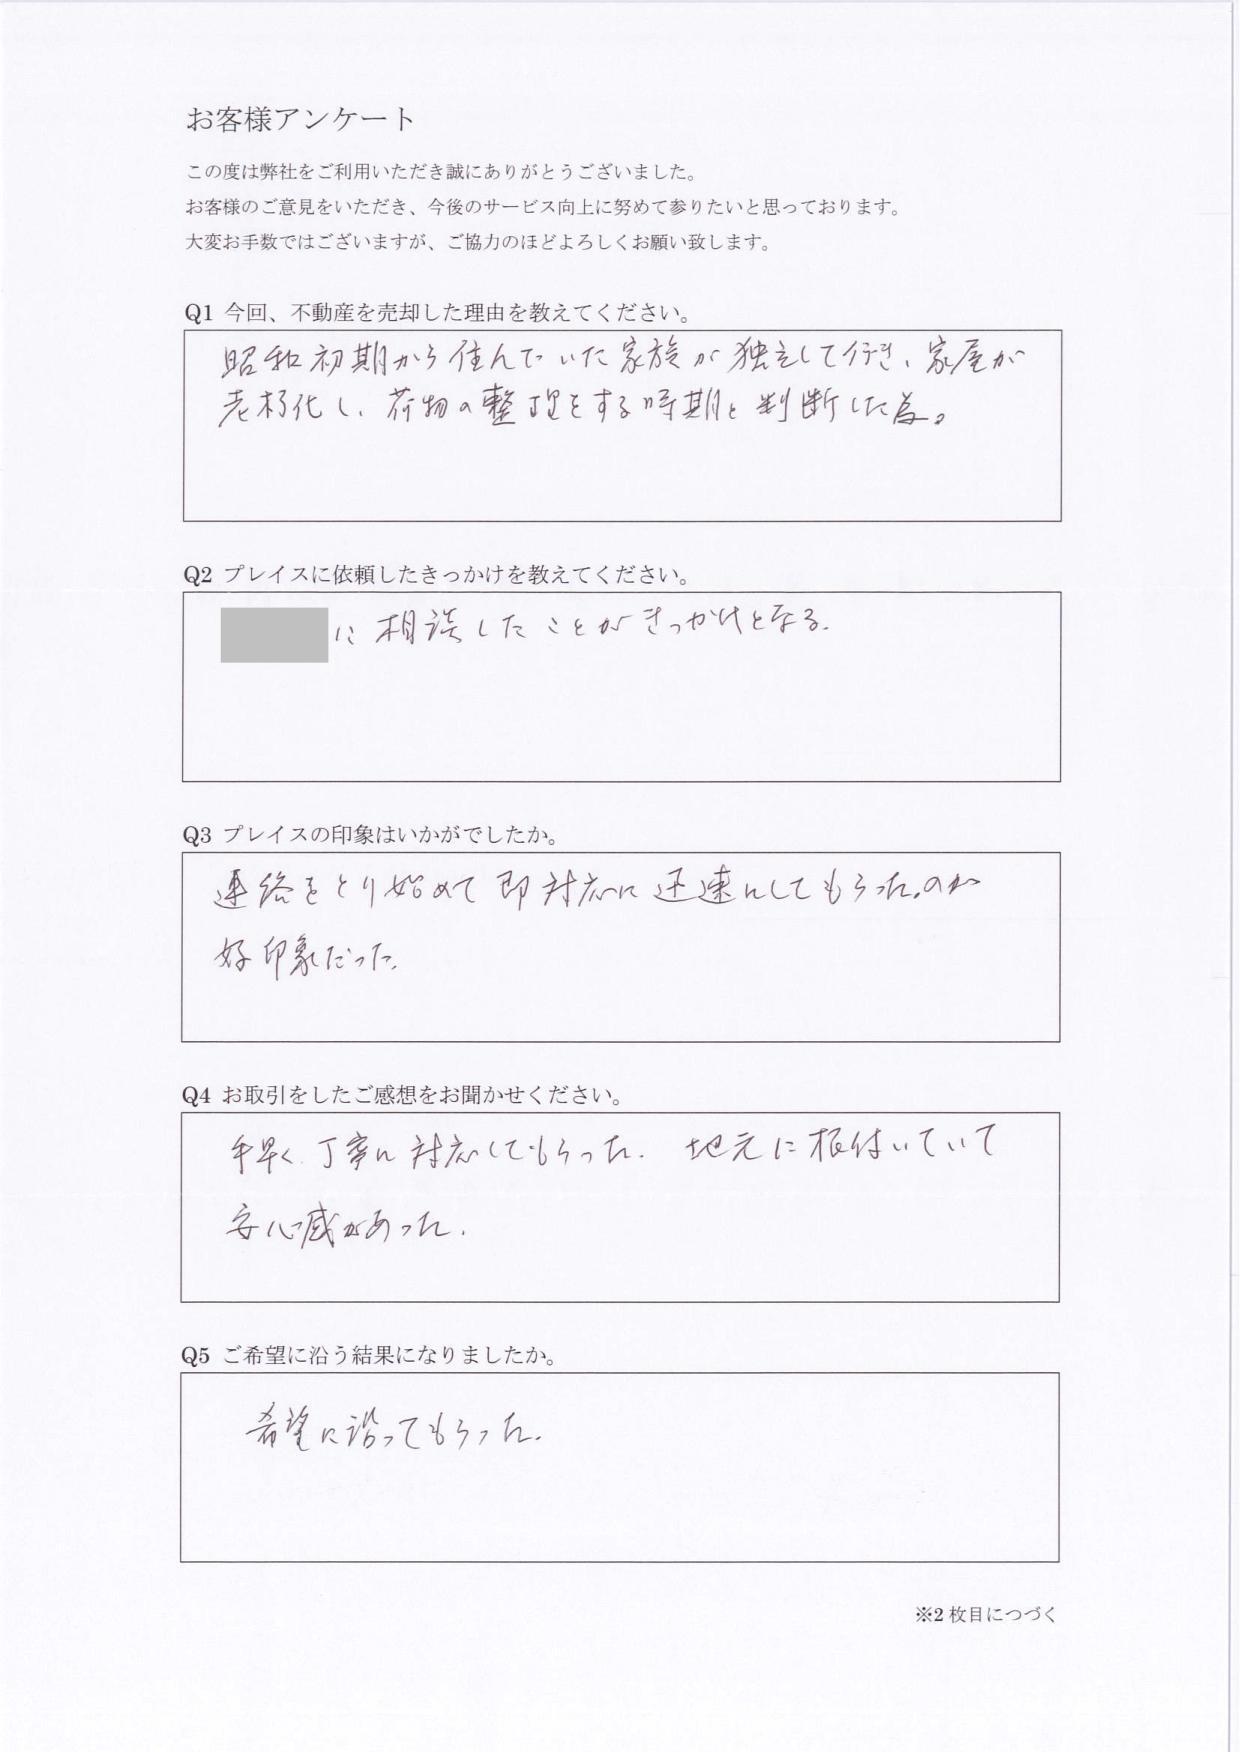 お客様アンケート
この度は弊社をご利用いただき誠にありがとうございました。
お客様のご意見をいただき、今後のサービス向上に努めて参りたいと思っております。
大変お手数ではございますが、ご協力のほどよろしくお願い致します。
Q1 今回、不動産を売却した理由を教えてください。
昭和初期から住んでいた家族が独立して行き、家屋が
老朽化し、荷物の整理をする時期と判断した為。
Q2 プレイスに依頼したきっかけを教えてください。
に相談したことがきっかけとなる.
Q3 プレイスの印象はいかがでしたか。
連絡をとり始めて即対応に迅速にしてもらった.のが
好印象だった.
Q4 お取引をしたご感想をお聞かせください。
手早く.丁寧に対応してもらった. 地元に根付いていて
安心感があった.
Q5 ご希望に沿う結果になりましたか。
希望に沿ってもらった.
※2 枚目につづく